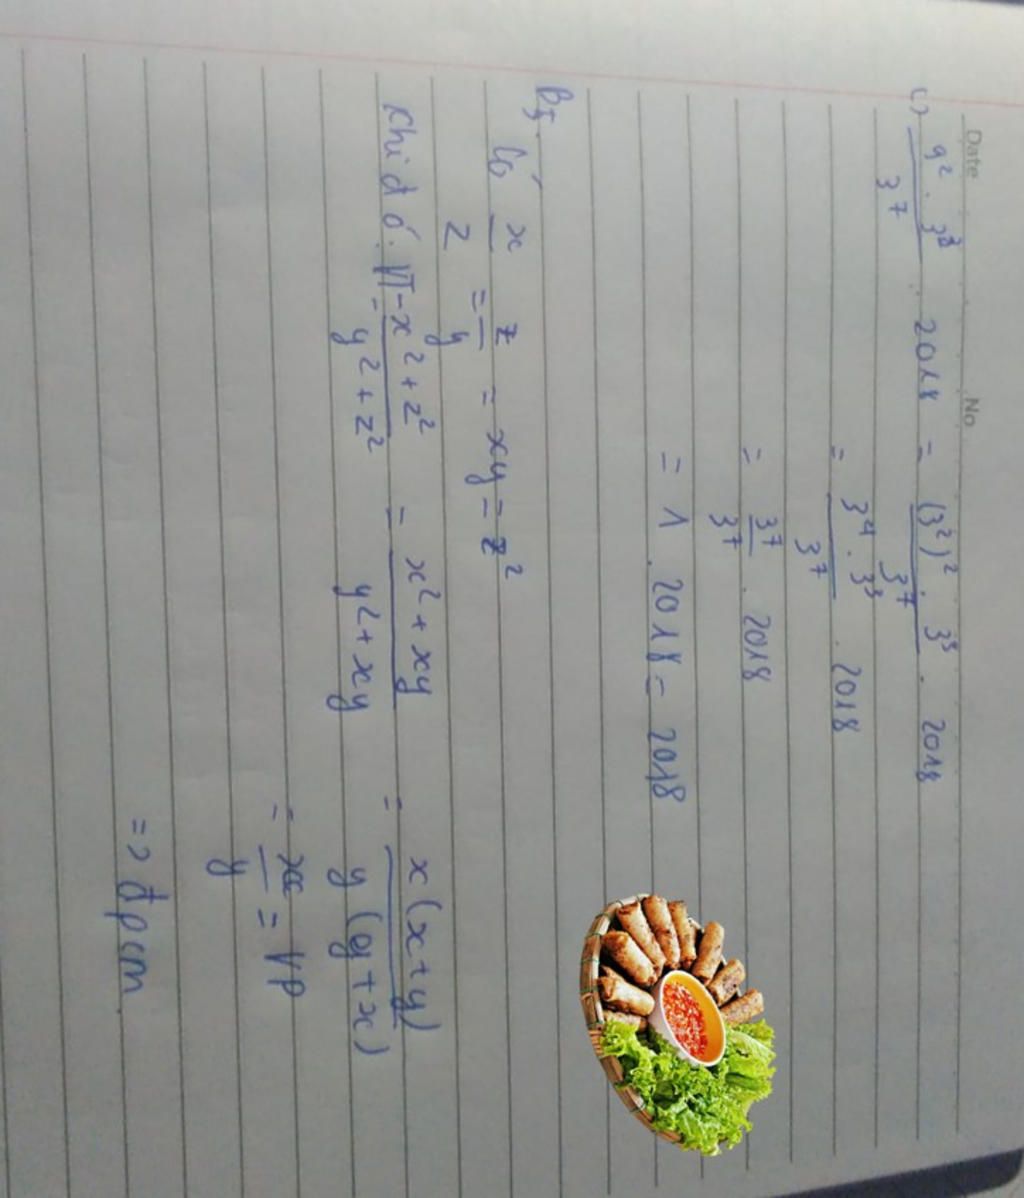 Date No
c) 9² . 3³ / 3⁷ . 2018 = (3²)² . 3³ / 3⁷ . 2018
= 3⁴ . 3³ / 3⁷ . 2018
= 3⁷ / 3⁷ . 2018
= 1 . 2018 = 2018
B5.
Có x / z = z / y = xy = z²
Khi đó. VT = x² + z² / y² + z² = x² + xy / y² + xy = x(x+y) / y(y+x)
= x / y = VP
=> đpcm